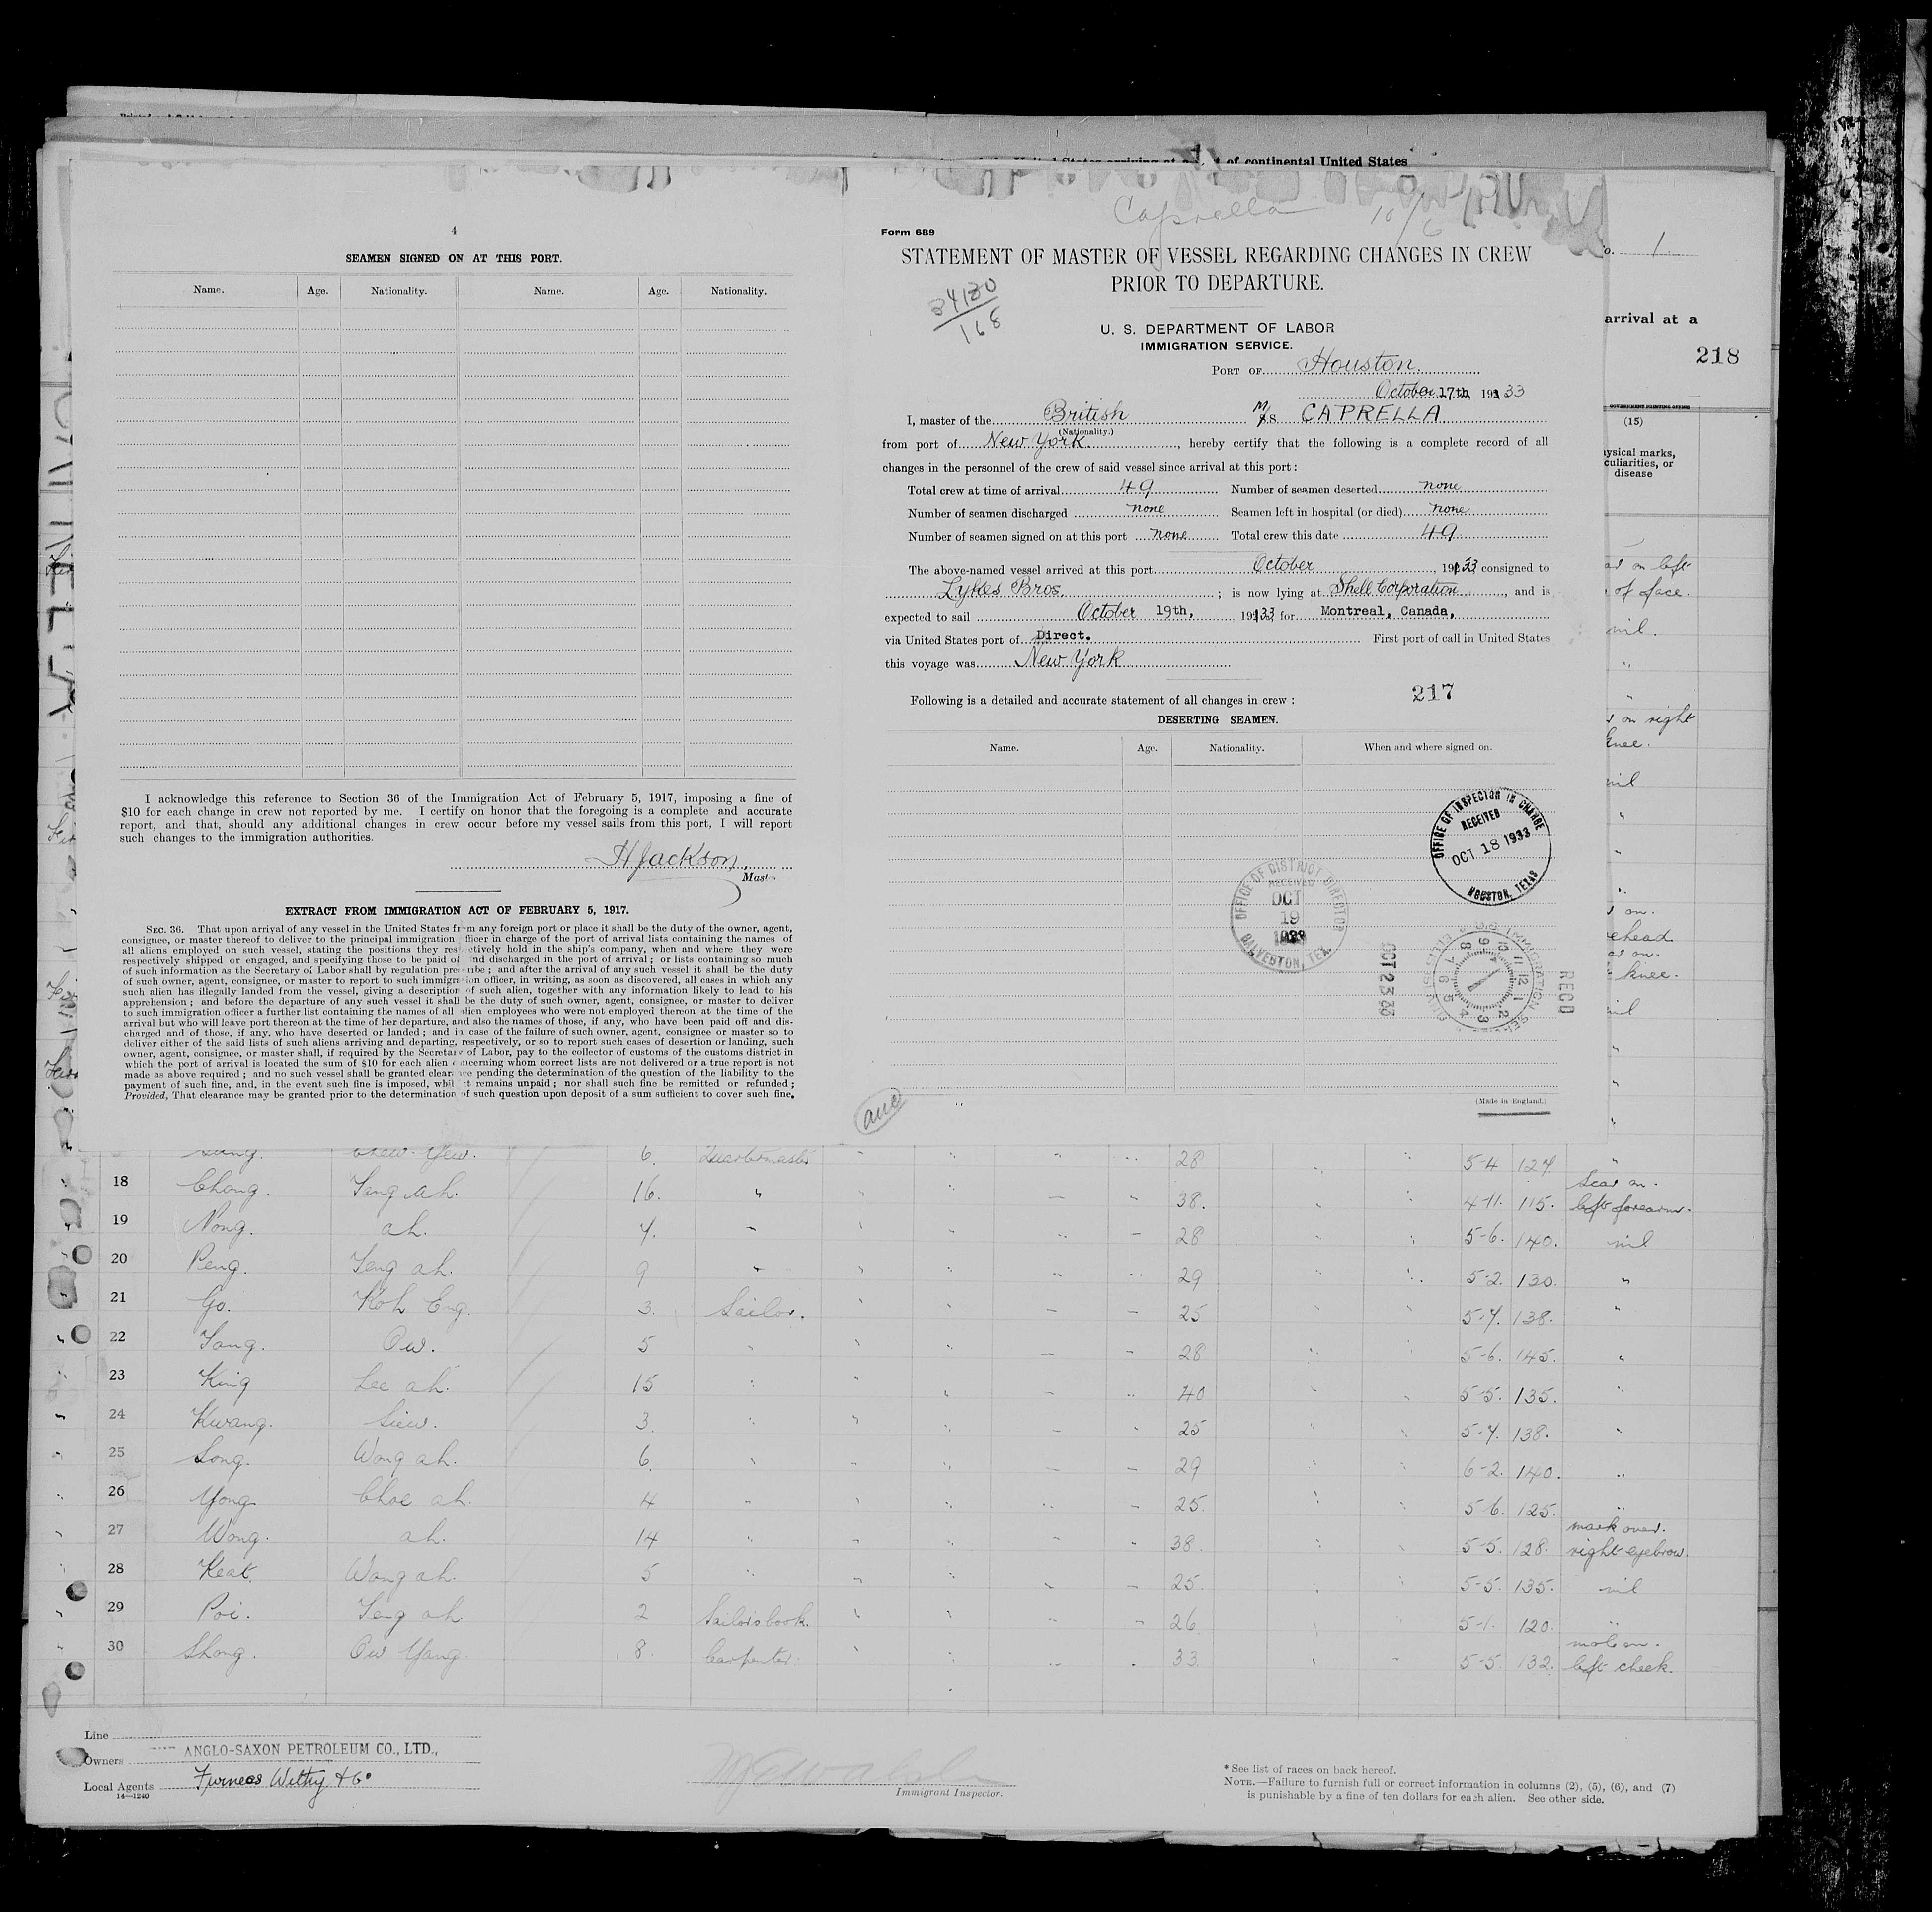 4
SEAMEN SIGNED ON AT THIS PORT.
Name. Age. Nationality. Name. Age. Nationality.
I acknowledge this reference to Section 36 of the Immigration Act of February 5, 1917, imposing a fine of
$10 for each change in crew not reported by me. I certify on honor that the foregoing is a complete and accurate
report, and that, should any additional changes in crew occur before my vessel sails from this port, I will report
such changes to the immigration authorities.
H Jackson
Mast
EXTRACT FROM IMMIGRATION ACT OF FEBRUARY 5, 1917.
SEC. 36. That upon arrival of any vessel in the United States from any foreign port or place it shall be the duty of the owner, agent,
consignee, or master thereof to deliver to the principal immigration officer in charge of the port of arrival lists containing the names of
all aliens employed on such vessel, stating the positions they respectively hold in the ship's company, when and where they were
respectively shipped or engaged, and specifying those to be paid off and discharged in the port of arrival; or lists containing so much
of such information as the Secretary of Labor shall by regulation prescribe; and after the arrival of any such vessel it shall be the duty
of such owner, agent, consignee, or master to report to such immigration officer, in writing, as soon as discovered, all cases in which any
such alien has illegally landed from the vessel, giving a description of such alien, together with any information likely to lead to his
apprehension; and before the departure of any such vessel it shall be the duty of such owner, agent, consignee, or master to deliver
to such immigration officer a further list containing the names of all alien employees who were not employed thereon at the time of the
arrival but who will leave port thereon at the time of her departure, and also the names of those, if any, who have been paid off and dis-
charged and of those, if any, who have deserted or landed; and in case of the failure of such owner, agent, consignee or master so to
deliver either of the said lists of such aliens arriving and departing, respectively, or so to report such cases of desertion or landing, such
owner, agent, consignee, or master shall, if required by the Secretary of Labor, pay to the collector of customs of the customs district in
which the port of arrival is located the sum of $10 for each alien concerning whom correct lists are not delivered or a true report is not
made as above required; and no such vessel shall be granted clearance pending the determination of the question of the liability to the
payment of such fine, and, in the event such fine is imposed, while it remains unpaid; nor shall such fine be remitted or refunded;
Provided, That clearance may be granted prior to the determination of such question upon deposit of a sum sufficient to cover such fine.
of continental United States
Caprella 10/6
Form 689
STATEMENT OF MASTER OF VESSEL REGARDING CHANGES IN CREW
PRIOR TO DEPARTURE.
34130
168
U. S. DEPARTMENT OF LABOR
IMMIGRATION SERVICE.
PORT OF Houston.
October 17th, 1933
I, master of the British M/S CAPRELLA
(Nationality.)
from port of New York, hereby certify that the following is a complete record of all
changes in the personnel of the crew of said vessel since arrival at this port:
Total crew at time of arrival 49 Number of seamen deserted none
Number of seamen discharged none Seamen left in hospital (or died) none
Number of seamen signed on at this port none Total crew this date 49
The above-named vessel arrived at this port October, 1933, consigned to
Lykes Bros.; is now lying at Shell Corporation, and is
expected to sail October 19th, 1933, for Montreal, Canada,
via United States port of Direct. First port of call in United States
this voyage was New York
Following is a detailed and accurate statement of all changes in crew: 217
DESERTING SEAMEN.
Name. Age. Nationality. When and where signed on.
OFFICE OF INSPECTOR IN CHARGE
RECEIVED
OCT 18 1933
HOUSTON, TEXAS
OFFICE OF DISTRICT DIRECTOR
RECEIVED
OCT
19
GALVESTON, TEX.
OCT 23 33
RECD
(Made in England.)
1
arrival at a
218
GOVERNMENT PRINTING OFFICE
(15)
ysical marks,
culiarities, or
disease
on left
of face.
nil.
on right
knee.
nil
on.
ehead.
on.
knee.
nil
Chew Yew. 6. Quartermaster 28 5-4 127. "
18 Chong. Tang ah. 16. " 38. 4-11. 115. Scar on. left forearm.
19 Nong. ah. 7. " 28 5-6. 140. nil
20 Peng. Teng ah. 9 " 29 5-2. 130. "
21 Go. Koh Eng. 3. Sailor. 25 5-7. 138. "
22 Tang. Ow. 5 " 28 5-6. 145. "
23 King Lee ah. 15 " 40 5-5. 135. "
24 Kwang. Siew. 3. " 25 5-7. 138. "
25 Song. Wong ah. 6. " 29 6-2. 140. "
26 Yong Choe ah. 4 " 25. 5-6. 125. "
27 Wong. ah. 14 " 38. 5-5. 128. mark over. right eyebrow.
28 Keat. Wong ah. 5 " 25. 5-5. 135. nil
29 Poi. Teng ah 2 Sailors cook. 26 5-1. 120. "
30 Shong. Ow Yang. 8. Carpenter. 33. 5-5. 132. mole on. left cheek.
Line
Owners ANGLO-SAXON PETROLEUM CO., LTD.,
Local Agents Furness Withy & Co
14—1240
Immigrant Inspector.
* See list of races on back hereof.
NOTE.—Failure to furnish full or correct information in columns (2), (5), (6), and (7)
is punishable by a fine of ten dollars for each alien. See other side.